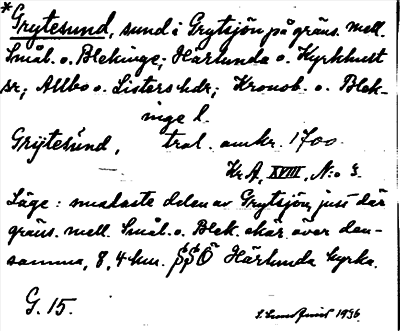 *Grytesund, sund i Grytsjön på gräns. mell.
Smål. o. Blekinge; Härlunda o. Kyrkhult
sr; Allbo o. Listers hdr; Kronob. o. Blek-
inge l.
Grÿtesund, trol. omkr. 1700.
Kr A, XVIII, N:o 3.
Läge: smalaste delen av Grytsjön, just där
gräns. mell. Smål. o. Blek. skär över den-
samma, 8,4 km. SSÖ Härlunda kyrka.
G. 15.
1936.